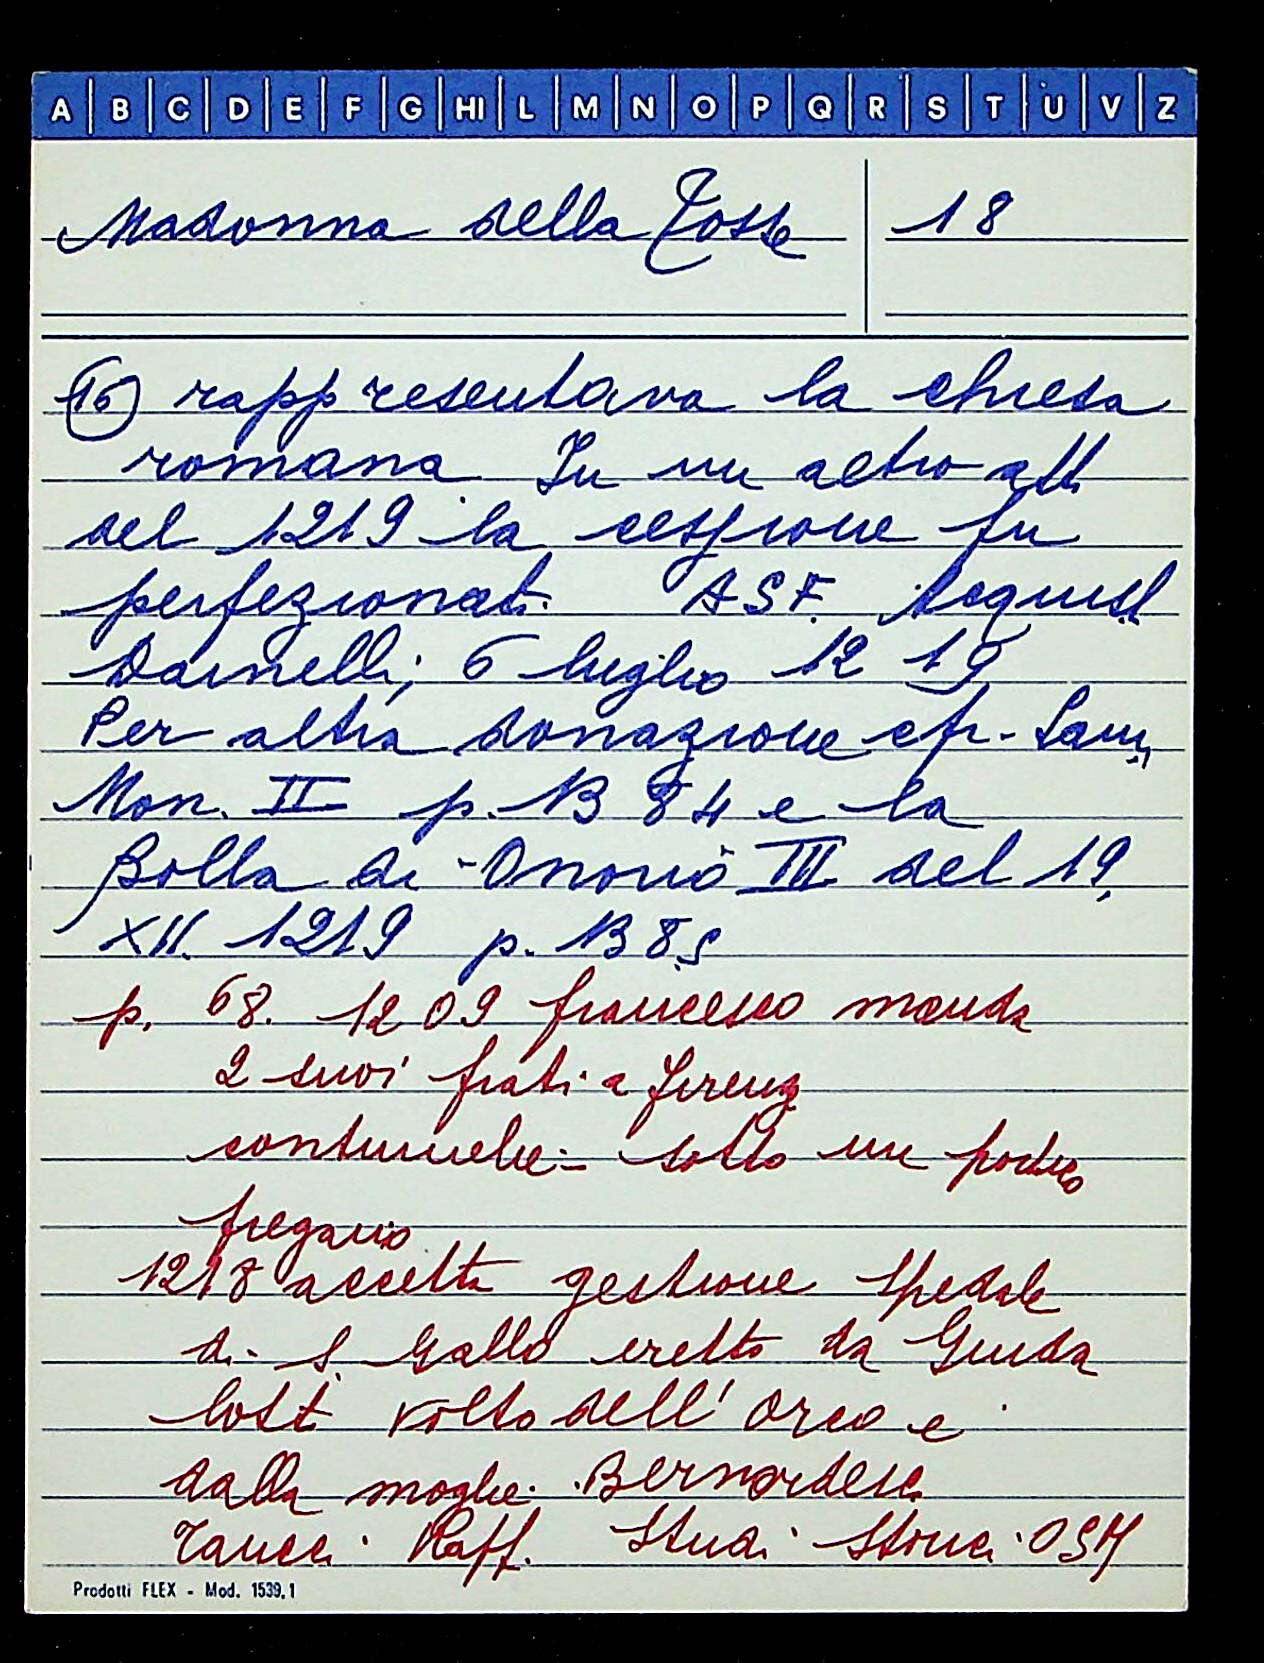 A B C D E F G HI L M N O P Q R S T U V Z
Madonna della Tosse 18
16 rappresentava la chiesa
romana In un altro att.
del 1219 la cessione fu
perfezionat. ASF. Acquist
Darnelli; 6 luglio 12 19
Per altra donazione cfr. Lami,
Mon. II p. 1384 e la
Bolla di Onorio III del 19.
XII. 1219 p. 1385
p. 68. 1209 francesco manda
2 suoi frati a firenz
contumelie - sotto un portico
fregano
1218 accetta gestione spedale
di S. Gallo eretto da Guida
lott volto dell' Orco e
dalla moglie Bernardesc
Taucci Raff. Studi Storici OSM
Prodotti FLEX - Mod. 1539.1